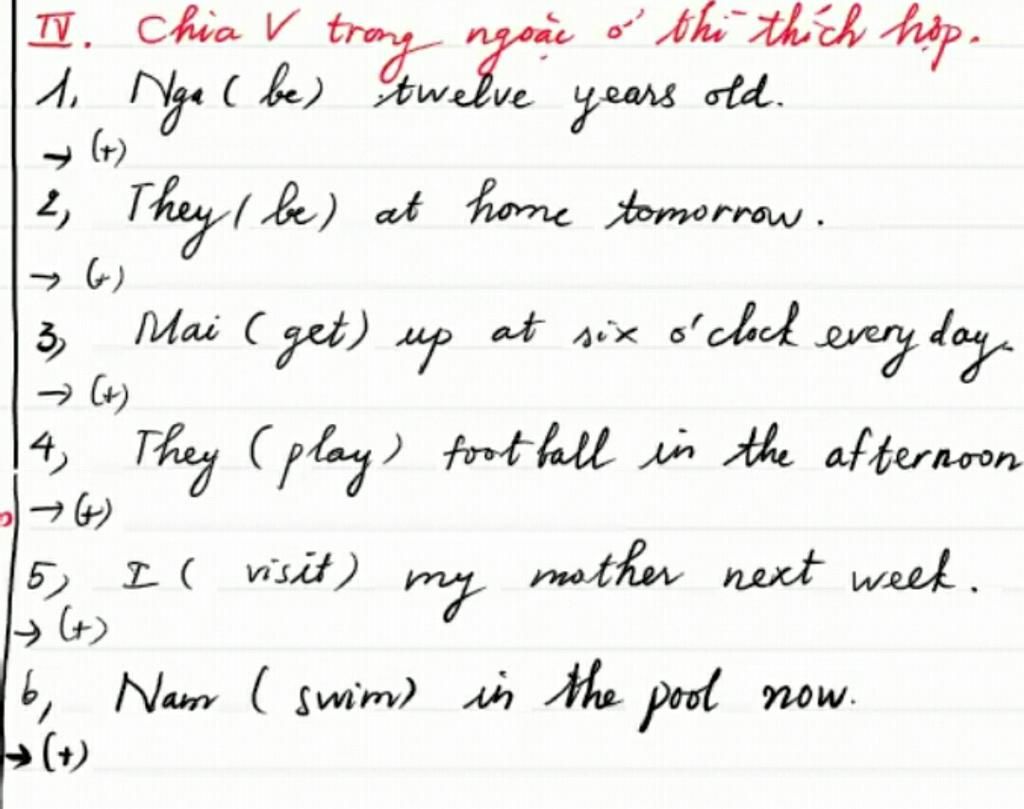 IV. Chia V trong ngoặc ở thì thích hợp.
1, Nga ( be) twelve years old.
→ (+)
2, They ( be) at home tomorrow.
→ (+)
3, Mai ( get) up at six o'clock every day.
→ (+)
4, They ( play) football in the afternoon
→ (+)
5, I ( visit) my mother next week.
→ (+)
6, Nam ( swim) in the pool now.
→ (+)